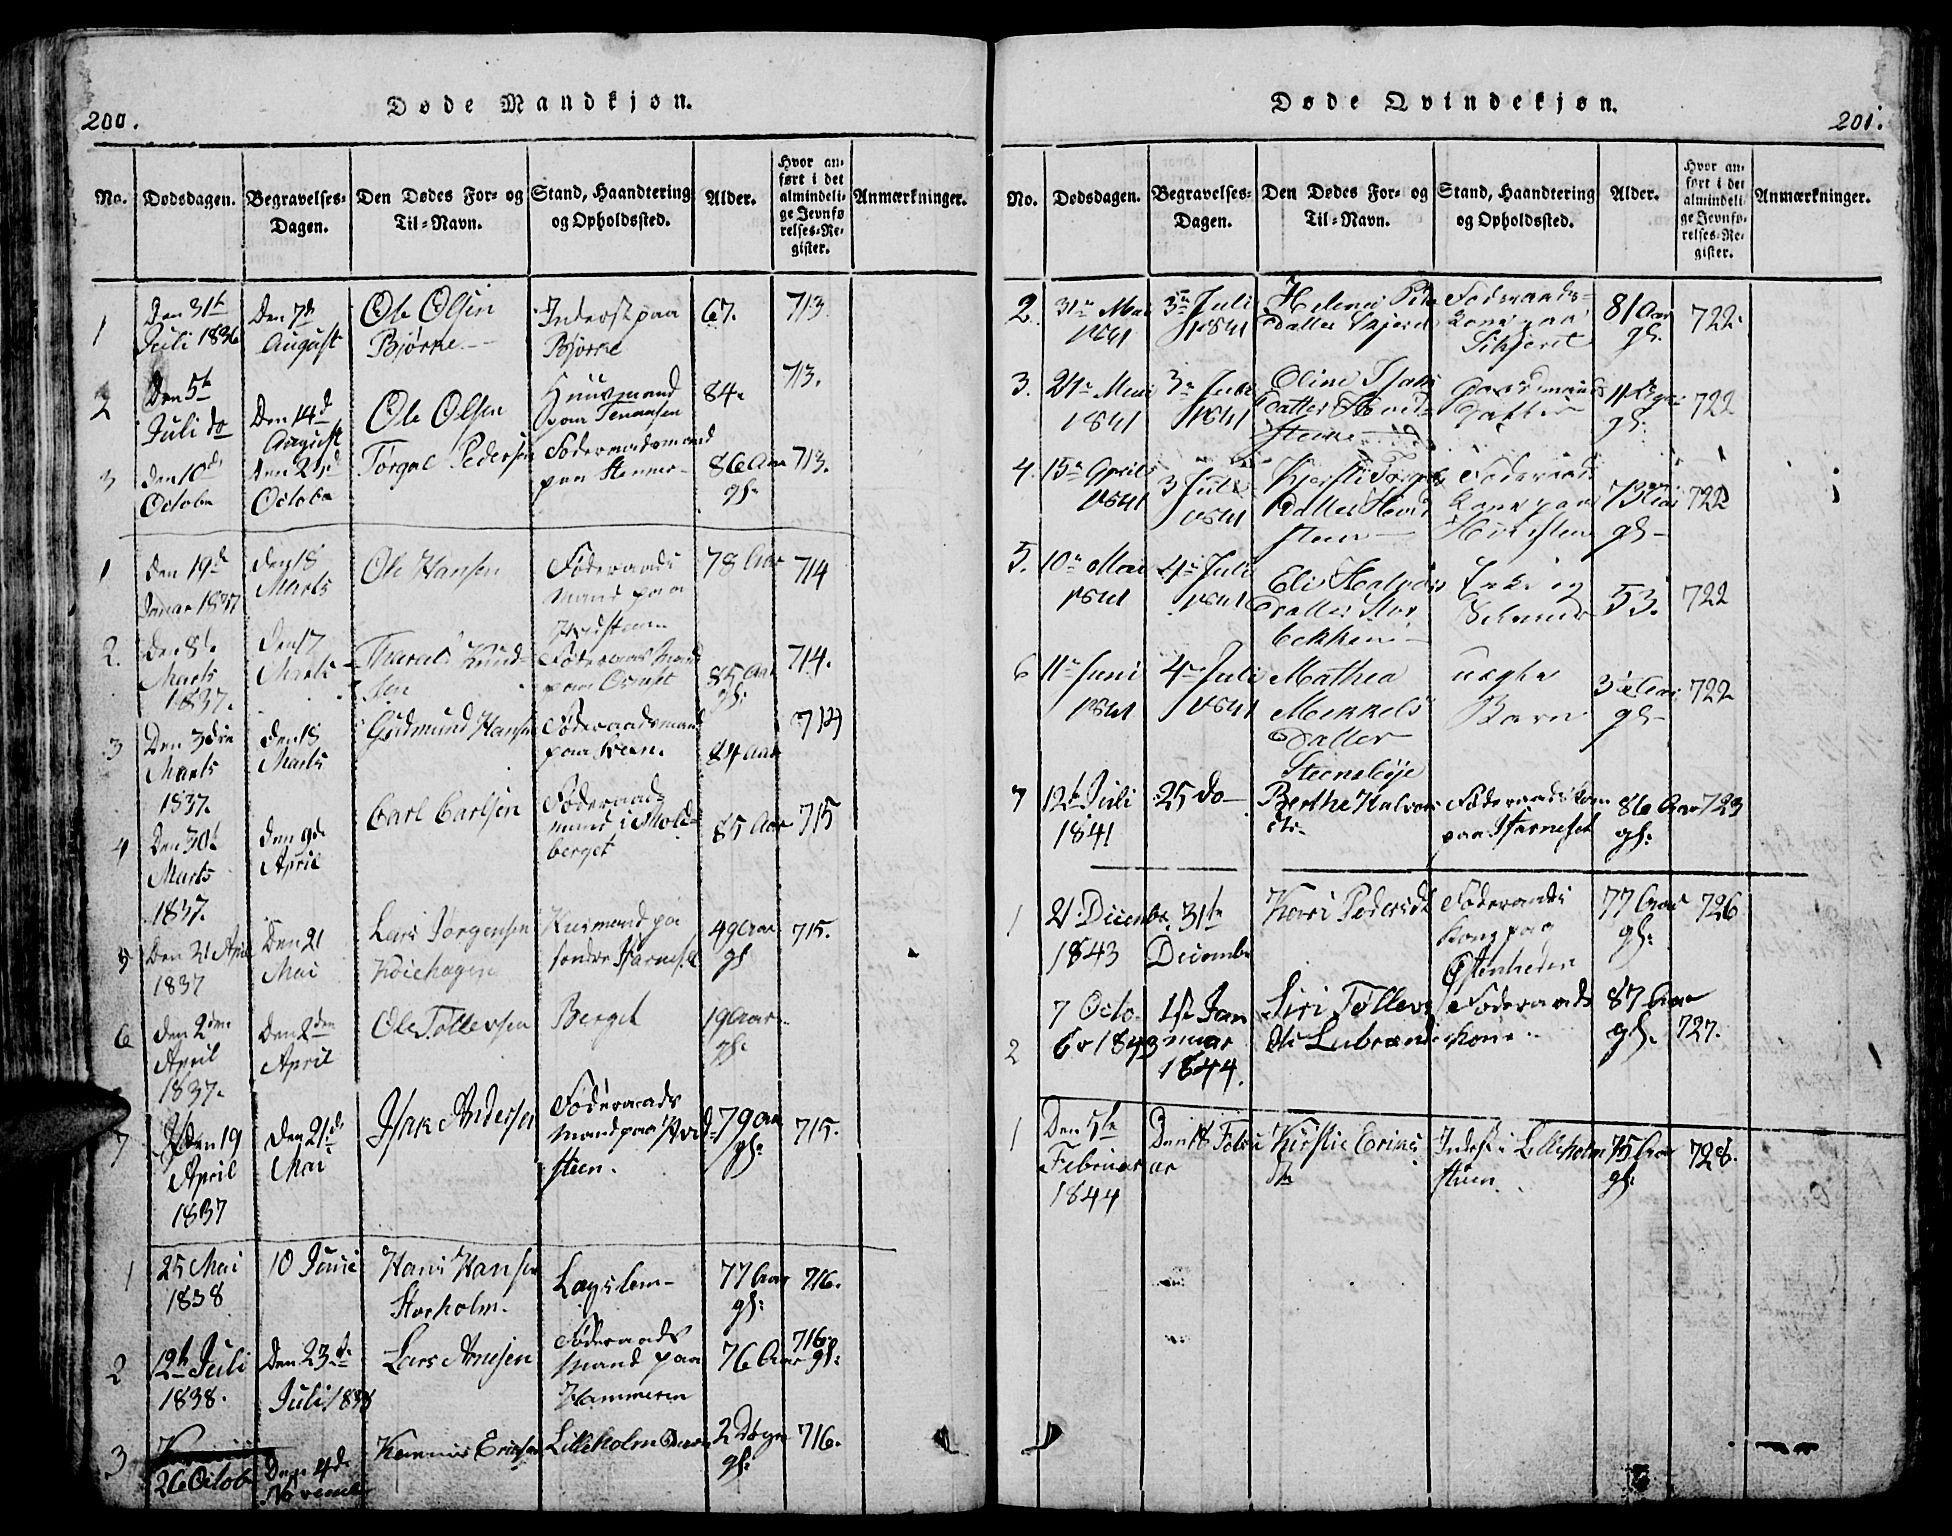 200.
Døde Mandkjøn.
No.
Dødsdagen.
Begravelses-
Dagen.
Den Dødes For- og
Til-Navn.
Stand, Haandtering
og Opholdssted.
Alder.
Hvor an-
ført i det
almindeli-
ge Jevnfø-
relses-Re-
gister.
Anmærkninger.
1
Den 31te
Juli 1836
Den 7de
August
Ole Olsen
Bjørke
Inderst paa
Bjørke
67.
713.
2
Den 5te
Juli do
Den 14de
August
Ole Olsen
Huusmand
84.
713.
3
den 10de
Octobe
den 23de
Octobe
Torgal Pedersen
Føderaadsmand
paa Stenner
86 Aar
gl.
713.
1
den 19de
Januar 1837
den 18
Marts
Ole Hansen
Føderaads
mand paa
78 Aar
714
2.
den 8de
Marts
1837.
den 17
Marts
Knud-
sen
Føderaads Mand
paa
85 Aar
gl.
714.
3
Den 3die
Marts
1837.
den 18
Marts
Gudmund Hansen
Føderaadsmand
paa
84 Aar
714
4
Den 30te
Marts
1837.
den 9de
April
Carl Carlsen
Føderaads
mand i Mold-
berget
85 Aar
715
5
Den 21 April
1837
Den 21
Mai
Lars Jørgensen
Koiehagen
Husmand på
søndre Starneset
49 Aar
gl
715.
6
Den 2den
April
1837.
Den 2den
April
Ole Tollevsen
Berget
19 Aar
gl.
7
den 19
April
1837
Den 21de
Mai
Isak Andersen
Føderaads
mand paa Hvid-
steen.
79 Aar
gl.
715.
1
25 Mai
1838
10 Junie
Hans Hansen
Storholm.
Lægslem
77 Aar
gl:
716.
2
12te Juli
1838.
Den 23de
Juli 1838
Lars Arnesen
Føderaads
mand paa
Hammeren
76 Aar gl:
716.
3
26 Octob
Den 4de
November
Ericsen
Lilleholm
2 Døgn
gl:
716.
201.
Døde Qvindekjøn.
No.
Dødsdagen.
Begravelses-
Dagen.
Den Dødes For- og
Til-Navn.
Stand, Haandtering
og Opholdssted.
Alder.
Hvor an-
ført i det
almindeli-
ge Jevnfø-
relses-Re-
gister.
Anmærkninger.
2.
31te Mai
1841
3die Juli
1841
Helene
Datter
Føderaads-
kone paa
81 Aar
gl.
722.
3.
1841
3die Juli
1841
Oline
Datter Hvid-
steen
Gaardmands
Datter
gl.
722
4.
15de April
1841
3 Juli
1841
Kjersti
Datter Hvid
steen
Føderaads
Kone paa
Hvidsteen
gl
722
5.
10de Mai
1841
4de Juli
1841
Eli Halvors
Datter Stor
bekken
Enke og
53.
722
6
11te Juni
1841
4de Juli
1841
Mathea
Mikkels
Datter
uægte
Barn
gl
722
7
12te Juli
1841
25 do
Berthe Halvors
dtr.
Føderaadskone
paa Starneset
86 Aar
gl:
723
1
21 Decembr
1843
31te
Decembr
Kari Pedersdt
Føderaads
Kone paa
Østenheden
77 Aar
gl:
726
2
7 Octo
br 1843
1ste Jan
nuar
1844.
Siri Tollevs
dtr
Føderaads
kone
87 Aar
gl.
727.
1
Den 5te
Februar
1844
Den 18 Febru
ar
Kirstie Erics
dtr
Inderst i Lilleholm
steen
75 Aar
gl:
728.